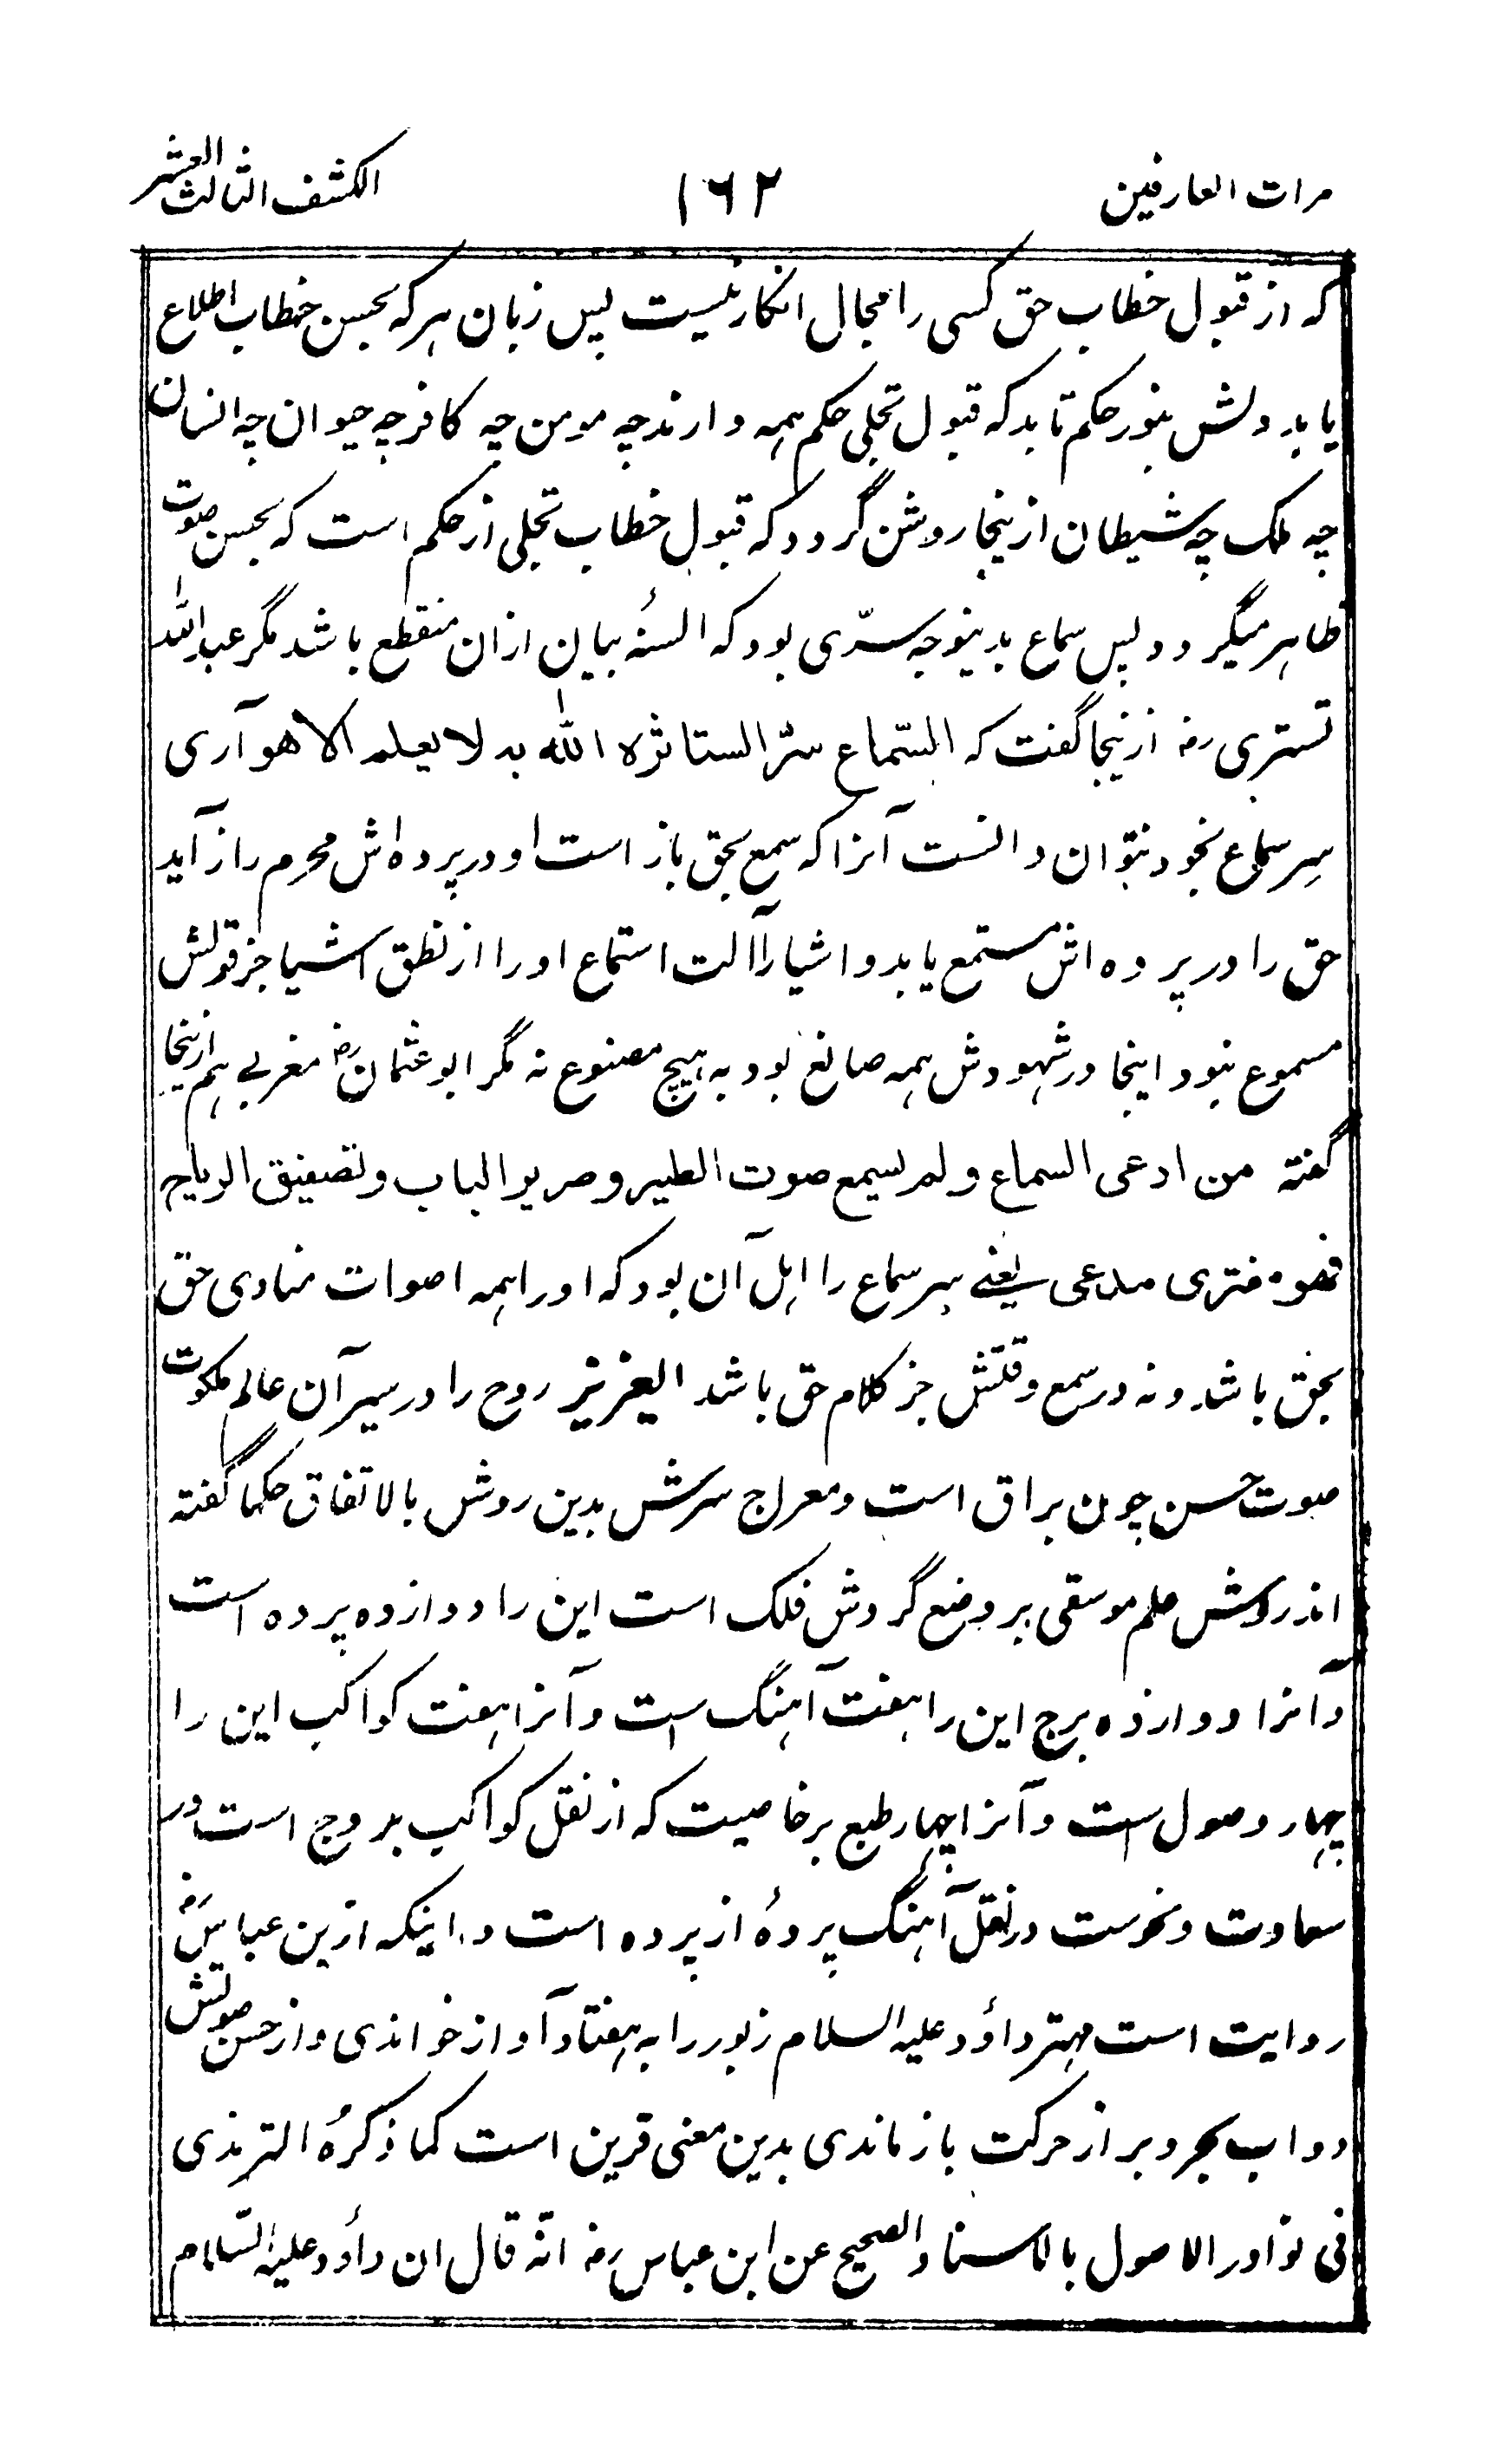 مرات العارفین ۱۶۲ الکشف الثالث العشر
که از قبول خطاب حق کسی را مجال انکار نیست پس زبان هر که بحسن خطاب اطلاع
یابد دلش بنور حکم تابد که قبول تجلی حکم همه دارند چه مومن چه کافر چه حیوان چه انسان
چه ملک چه شیطان ازینجا روشن گردد که قبول خطاب تجلی از حکم است که بحسن صوت
ظاهر میگردد پس سماع بدینوجه سرّی بود که السنۂ بیان ازان منقطع باشد مگر عبد الله
تستری رض ازینجا گفت که السّماع سرّ الستاثره الله به لا یعلمه الا هو آری
سِر سماع بخود نتوان دانست آنرا که سمع بحق باز است او در پرده اش محرم راز آید
حق را در پرده اش مستمع یابد و اشیا را آلت استماع او را از نطق اشیا جز قولش
مسموع نبود اینجا در شهودش همه صانع بود به هیچ مصنوع نه مگر ابو عثمان رض مغربی هم ازینجا
گفته من ادعی السماع و لم یسمع صوت الطیر و صریر الباب و تصفیق الریاح
فهو مفتری مدعی یعنی سِر سماع را اهل آن بود که او را همه اصوات منادی حق
بحق باشد و نه در سمع وقتش جز کلام حق باشد العزیز روح را در سیر آن عالم ملکوت
صوت حسن چون براق است و معراج سرش بدین روش بالاتفاق حکما گفته
اند روش علم موسقی بر وضع گردش فلک است این را دوازده پرده است
و آنرا دوازده برج این را هفت آهنگ است و آنرا هفت کواکب این را
چهار وصول است و آنرا چهار طبع بر خاصیت که از نقل کواکب بروج است در
سعادت و نحوست در نقل آهنگ پردۂ از پرده است و اینکه ازین عباس رض
روایت است مهتر داؤد علیه السلام زبور را به هفتاد آواز خواندی و از حسن صوتش
دواب بحر و بر از حرکت باز ماندی بدین معنی قرین است کما ذکرهُ الترمذی
فی نوادر الاصول بالاسناد الصحیح عن ابن عباس رض انّه قال ان داؤد علیه السّلام